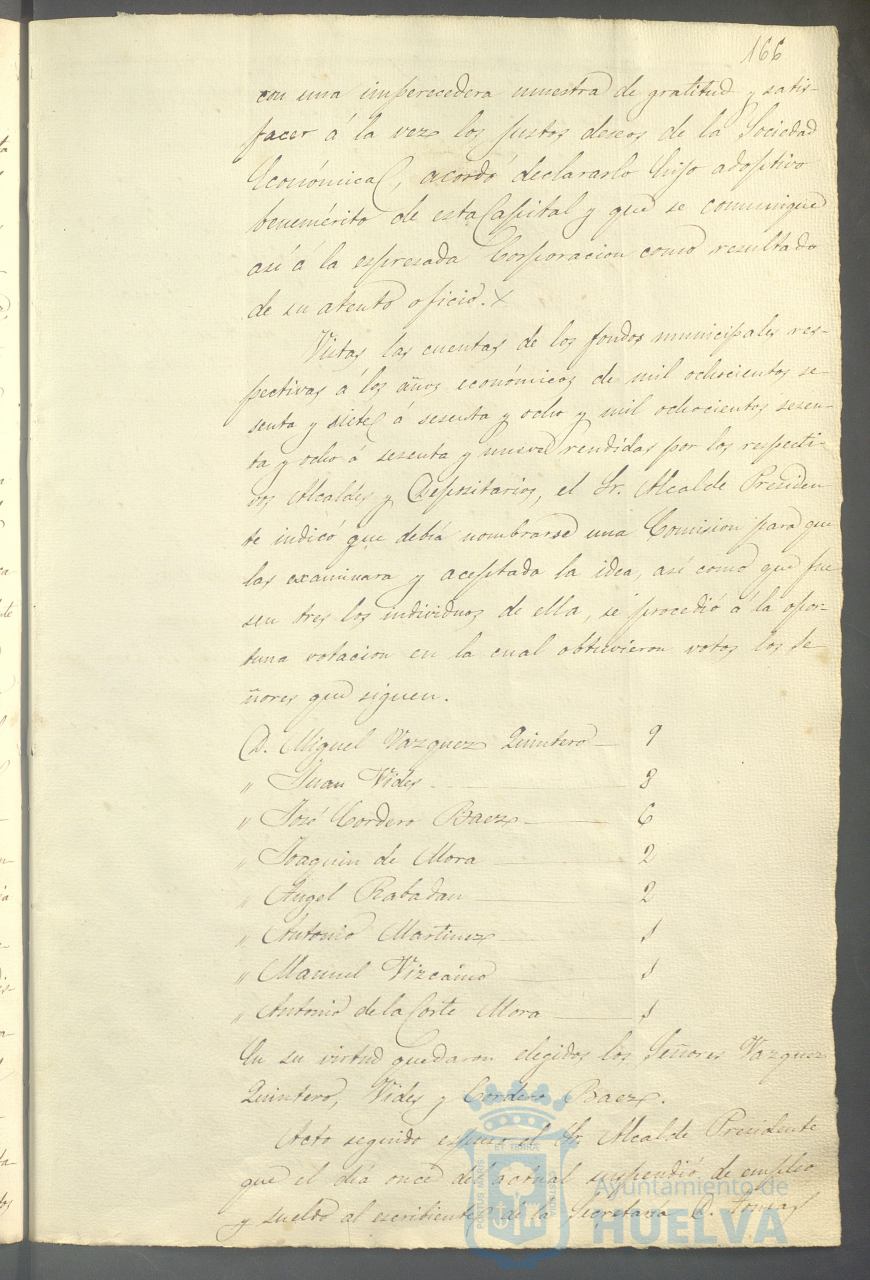 166
con una imperecedera muestra de gratitud y satis-
facer á la vez los justos deseos de la Sociedad
Económica, acordó declararlo hijo adoptivo
benemérito de esta Capital y que se comunique
así á la espresada Corporacion como resultado
de su atento oficio.
Vistas las cuentas de los fondos municipales res-
pectivas á los años económicos de mil ochocientos se-
senta y siete á sesenta y ocho y mil ochocientos sesen-
ta y ocho á sesenta y nueve rendidas por los respecti-
vos Alcaldes y Depositarios, el Sr. Alcalde Presiden-
te indicó que debía nombrarse una Comision para que
las examinara y aceptada la idea, así como que fue
sen tres los individuos de ella, se procedió á la opor-
tuna votacion en la cual obtuvieron votos los se
ñores que siguen.
D. Miguel Vazquez Quintero — 9
" Juan Vides — 8
" José Cordero Baez — 6
" Joaquin de Mora — 2
" Angel Rabadan — 2
" Antonio Martinez — 1
" Manuel Vizcaino — 1
" Antonio de la Corte Mora — 1
En su virtud quedaron elegidos los Señores Vazquez
Quintero, Vides y Cordero Baez.
Acto seguido espuso el Sr. Alcalde Presidente
que el día once del actual suspendió de empleo
y sueldo al escribiente de la Secretaría D. Tomas
PORTUS MARIS ET TERRÆ CUSTODIA
Ayuntamiento de
HUELVA